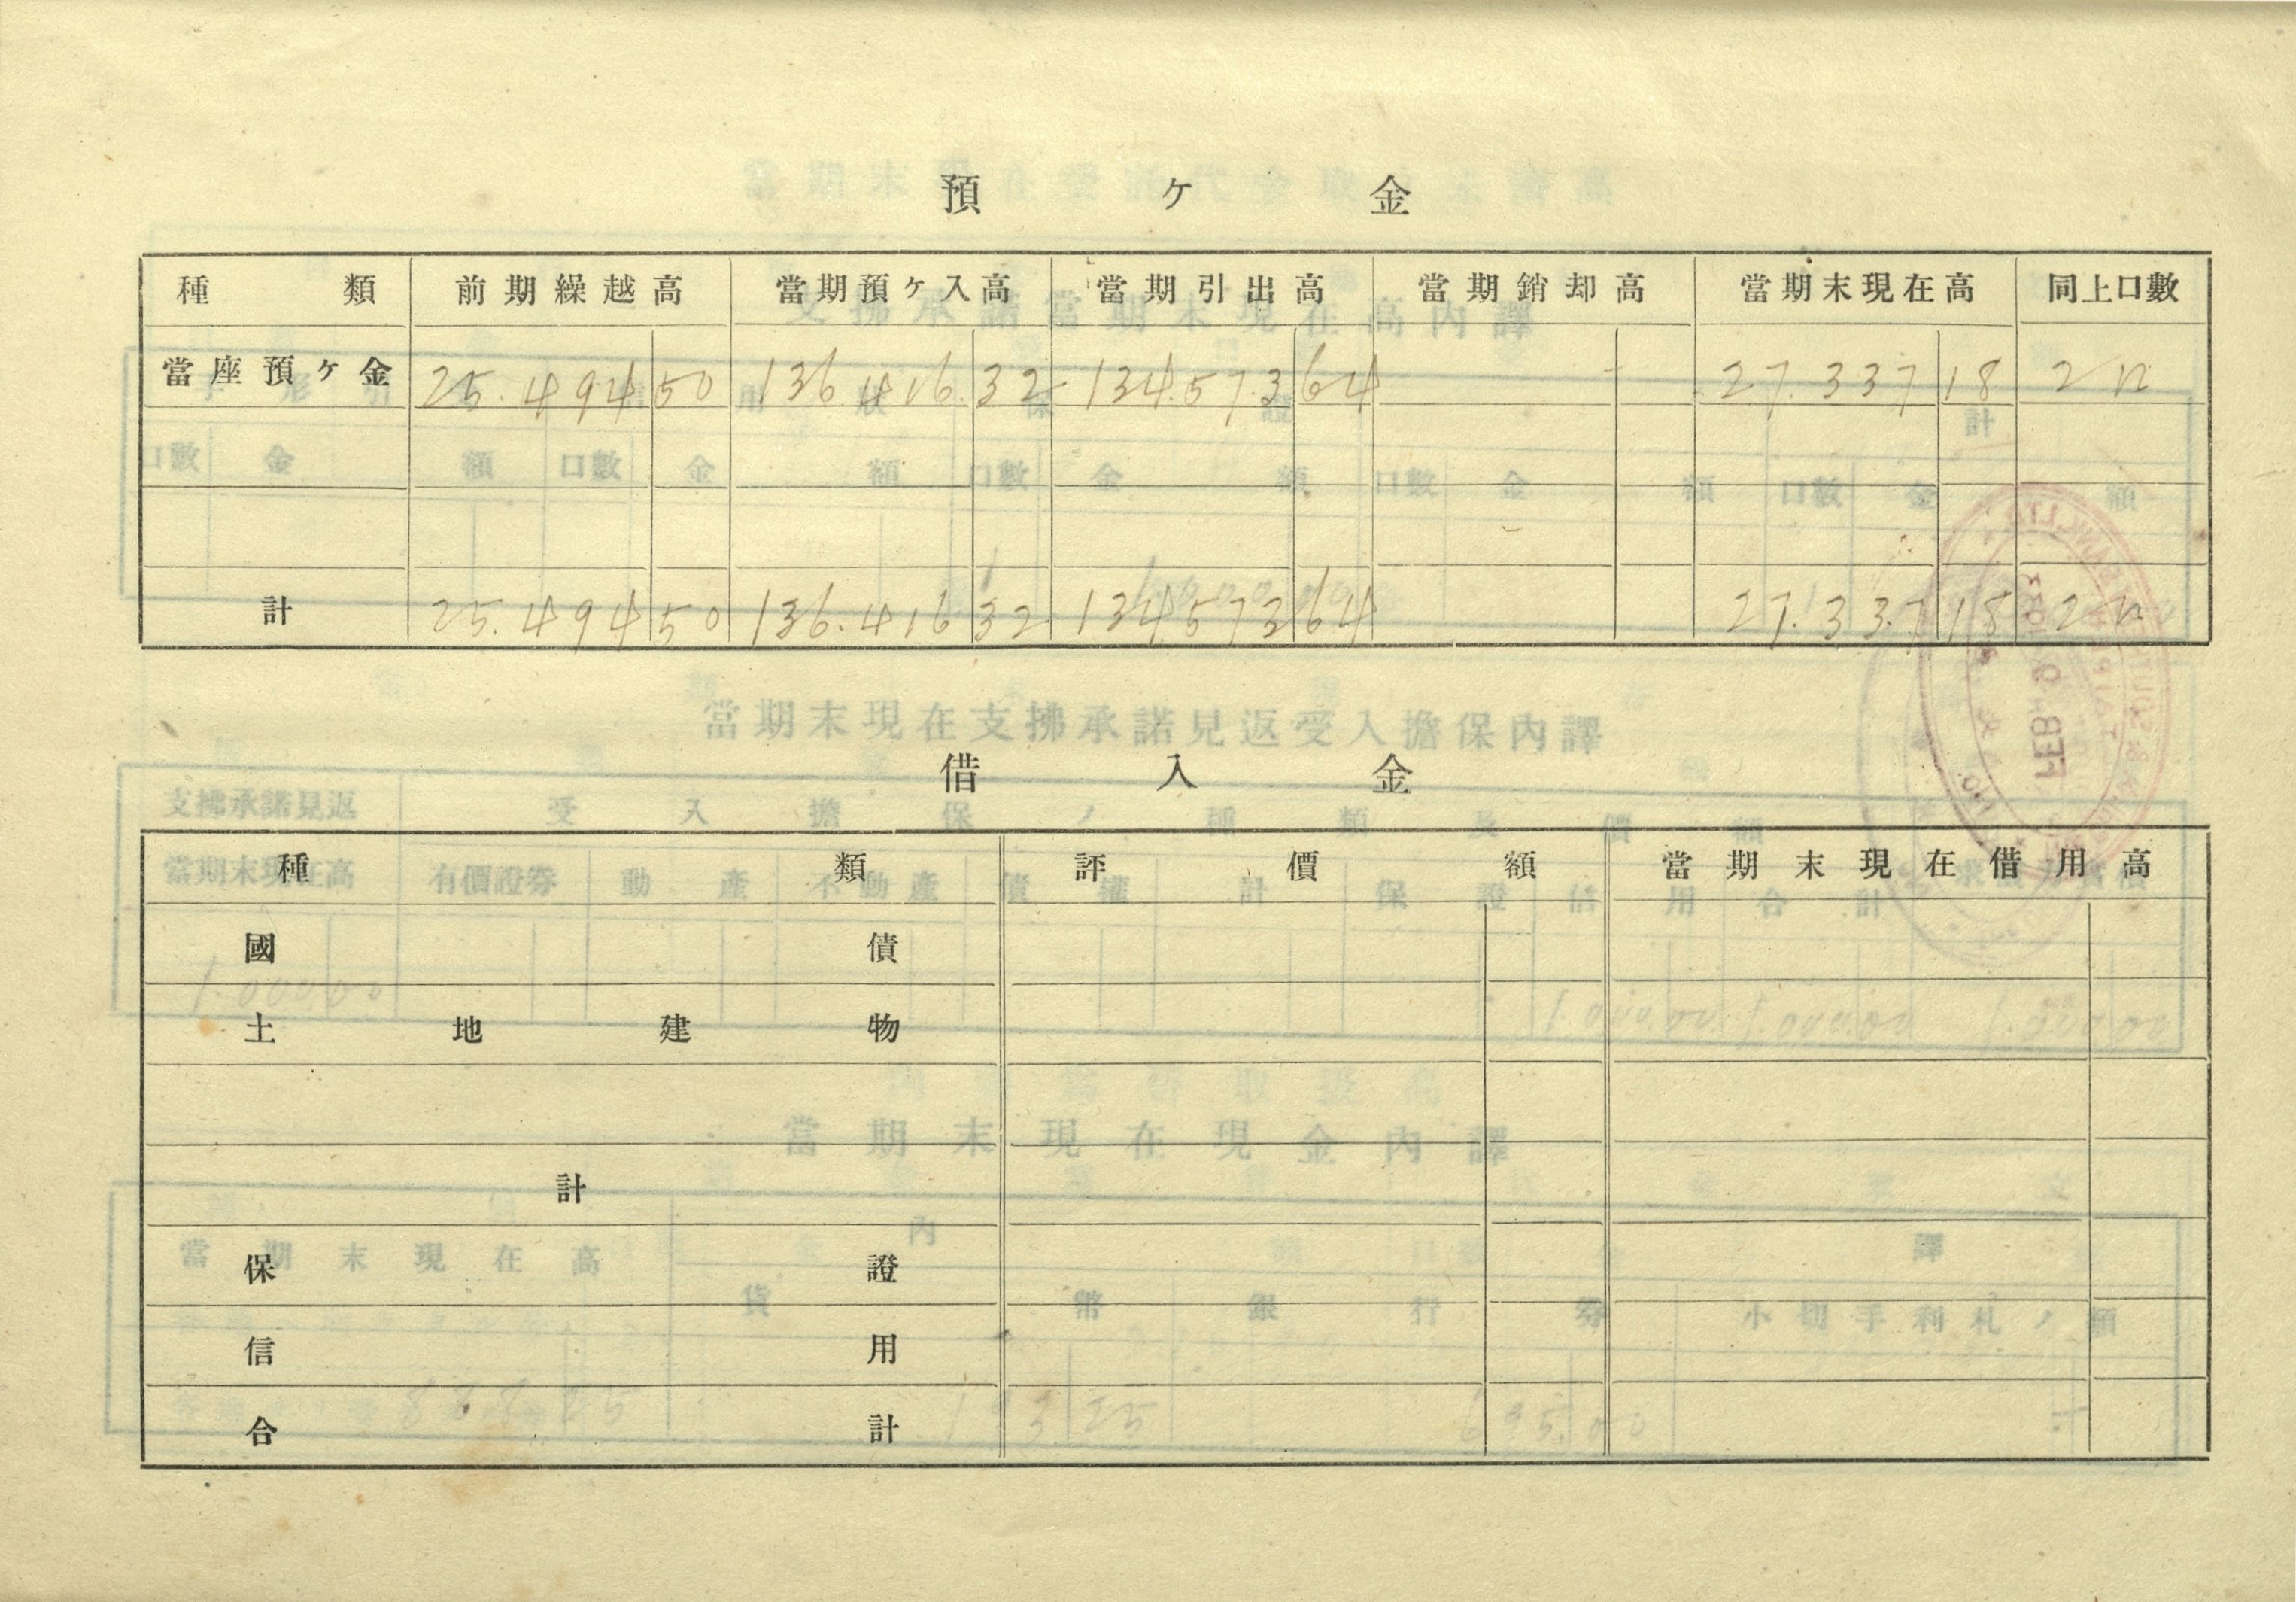 預ケ金
種類 前期繰越高 當期預ケ入高 當期引出高 當期銷却高 當期末現在高 同上口數
當座預ケ金 25.494 50 136.416.32 134.573 64 27.337 18 2口
計 25.494 50 136.416 32 134.573 64 27.337 18 2口
借入金
種類 評價額 當期末現在借用高
國債
土地建物
計
保證
信用
合計